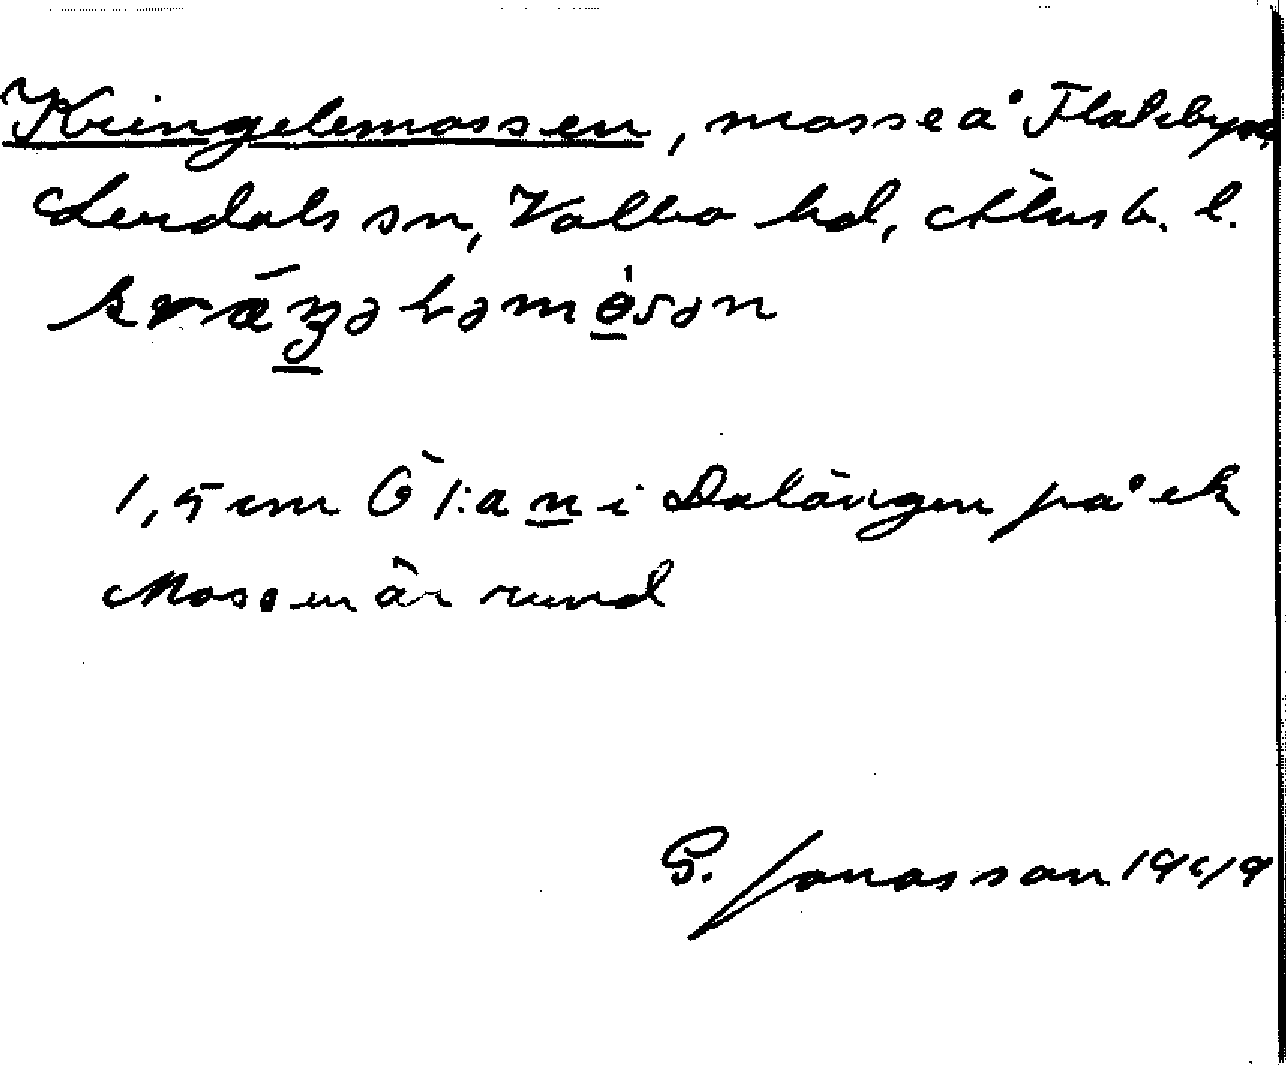 Kringelemossen, mosse å Flateby
Lerdals sn, Valbo hd, Älvsb. l.
1,5 cm Ö l:a n i Dalängen på ek
Mossen är rund
G. Jonasson 1949